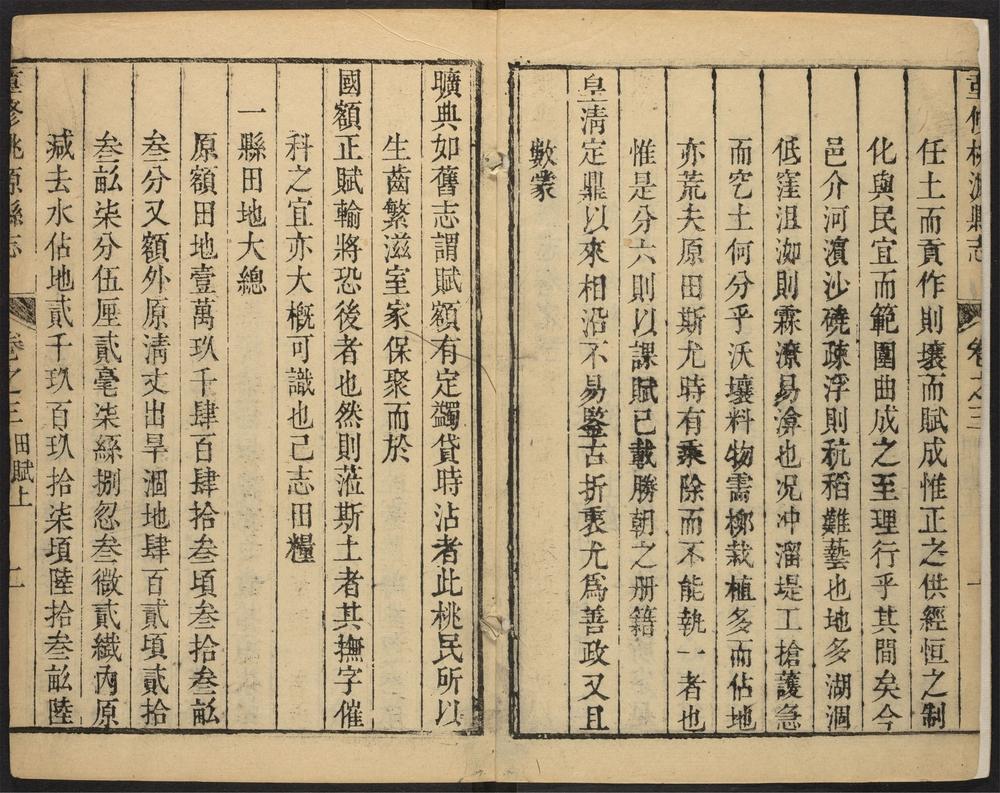 重修桃源縣志 卷之三
任土而貢作則壤而賦成惟正之供經恒之制
化與民宜而範圍曲成之至理行乎其間矣今
邑介河濵沙磽疎浮則秔稻難藝也地多湖涸
低窪沮洳則霖潦易渰也况冲溜堤工搶護急
而空土何分乎沃壤料物需栁栽植多而佔地
亦荒夫原田斯尤時有乘除而不能執一者也
惟是分六則以課賦已載勝朝之册籍
皇清定鼎以來相沿不易鑒古折衷尤爲善政又且
數蒙
曠典如舊志謂賦額有定蠲貸時沾者此桃民所以
生齒繁滋室家保聚而於
國額正賦輸將恐後者也然則蒞斯土者其撫字催
科之宜亦大概可識也已志田糧
一縣田地大總
原額田地壹萬玖千肆百肆拾叁頃叁拾叁畆
叁分又額外原清丈出旱涸地肆百貳頃貳拾
叁畆柒分伍厘貳毫柒絲捌忽叁微貳纎內原
減去水佔地貳千玖百玖拾柒頃陸拾叁畆陸
重修桃源縣志 卷之三 田賦上 二